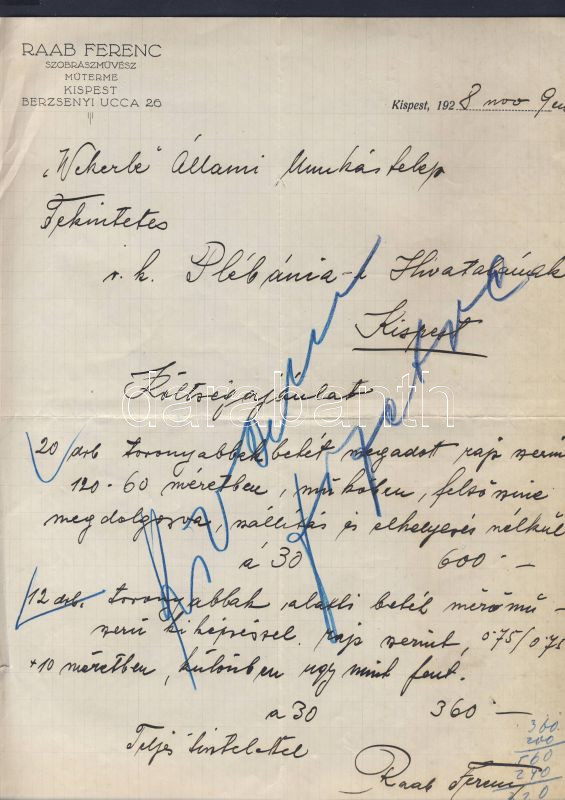 RAAB FERENC
SZOBRÁSZMŰVÉSZ
MŰTERME
KISPEST
BERZSENYI UCCA 26
Kispest, 1928 nov 9én
„Wekerle” Állami Munkástelep
Tekintetes
r. k. Plébánia-i Hivatalának
Kispest
Költségajánlat
darabanth
20 drb toronyabbak betét megadott rajz szerint
120-60 méretben, műkőben, felső színe
megdolgozva, szállítás és elhelyezés nélkül
á 30 600 –
12 drb. toronyabbak alatti betét
szerű kiképzéssel rajz szerint, 075/075
+10 méretben, különben ugy mint fent.
a 30 360 –
Teljes tisztelettel
Raab Ferenc
360.
200
560